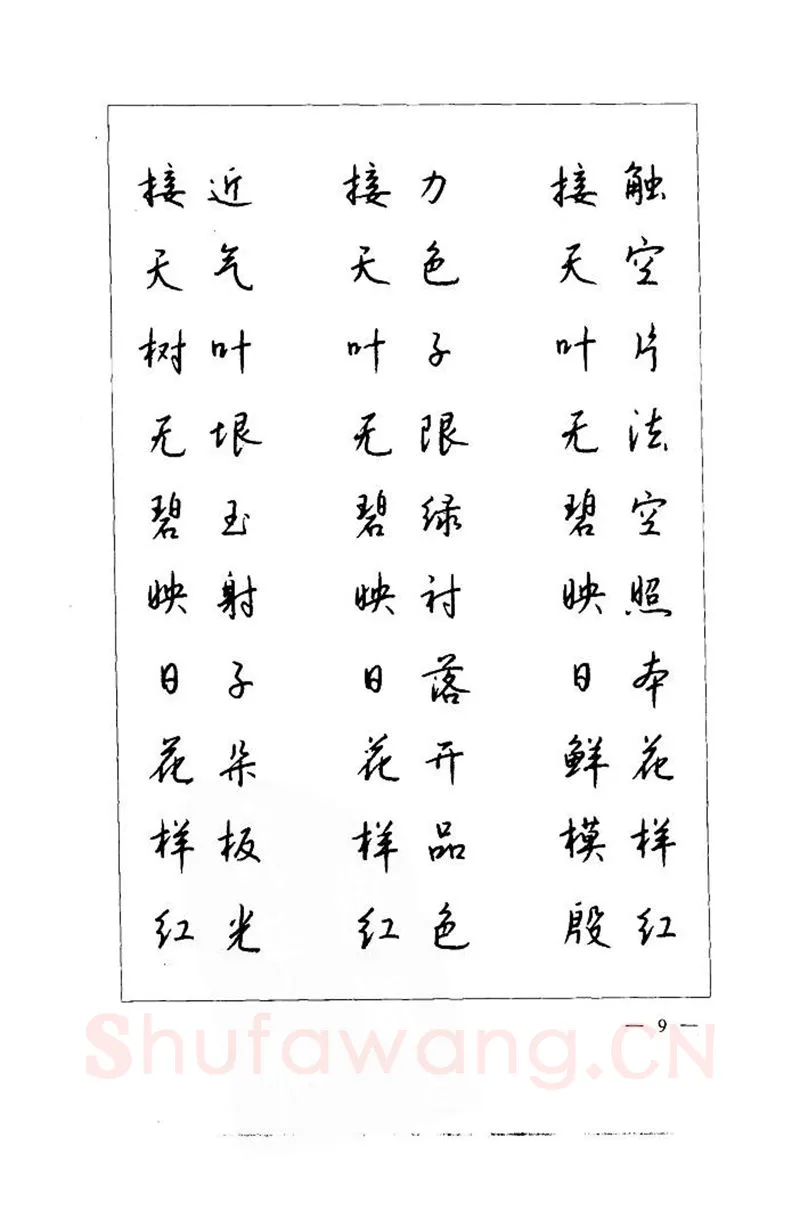 接近 接力 接触
天气 天色 天空
树叶 叶子 叶片
无垠 无限 无法
碧玉 碧绿 碧空
映射 映衬 映照
日子 日落 日本
花朵 花开 鲜花
样板 样品 模样
红光 红色 殷红
— 9 —
Shufawang.CN